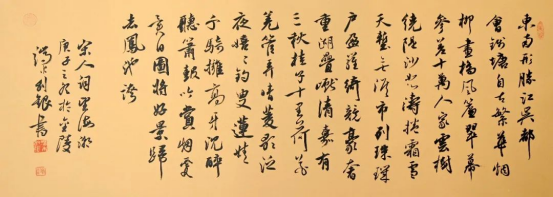 東南形勝江吴都
會錢塘自古繁華烟
柳畫橋風簾翠幕
参差十萬人家雲樹
繞隄沙怒濤捲霜雪
天塹無涯市列珠璣
户盈羅綺競豪奢
重湖叠巘清嘉有
三秋桂子十里荷花
羌管弄晴菱歌泛
夜嬉嬉釣叟蓮娃
千騎擁高牙乘醉
聽簫鼓吟賞烟霞
異日圖將好景歸
去鳳池誇
宋人词望海潮
庚子之冬於金陵
刘銀書